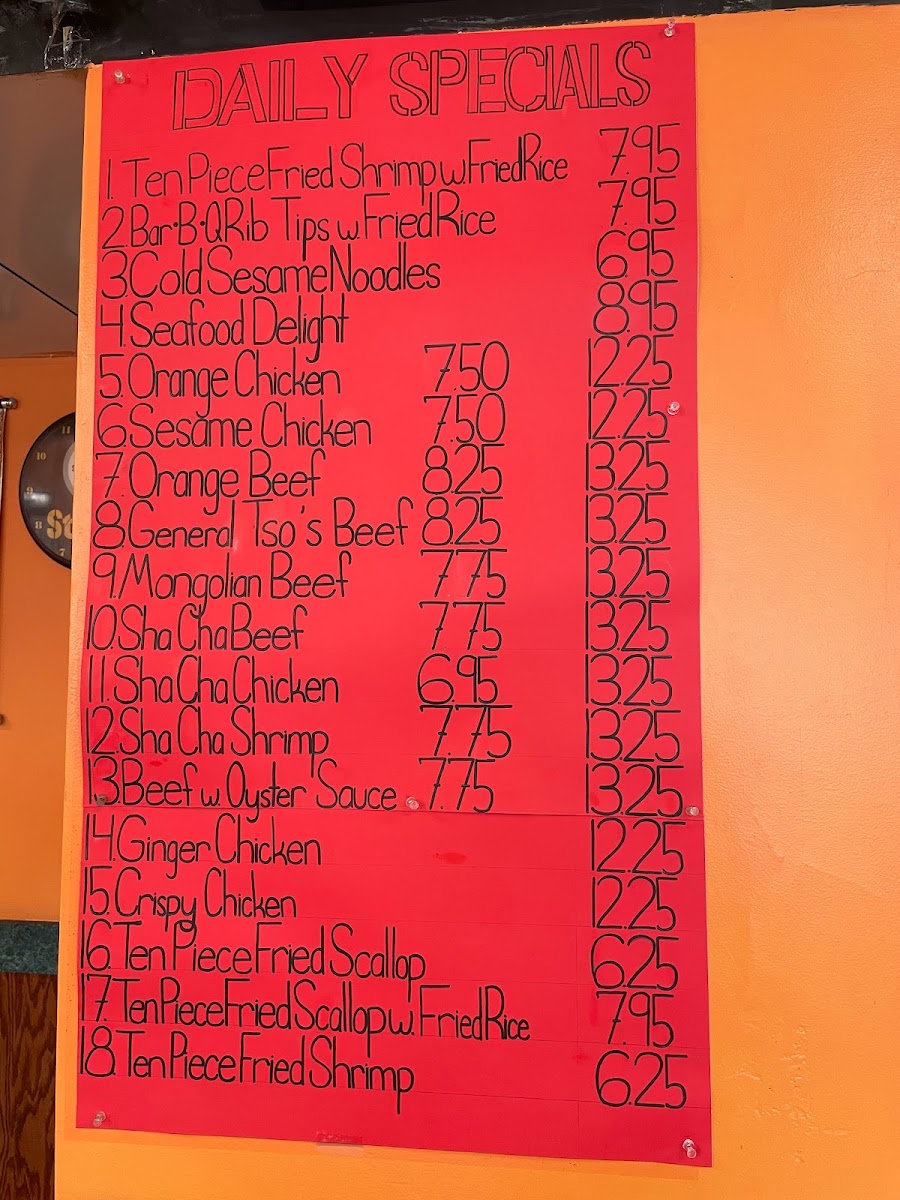 DAILY SPECIALS
1. Ten Piece Fried Shrimp w. Fried Rice 7.95
2. Bar-B-Q Rib Tips w. Fried Rice 7.95
3. Cold Sesame Noodles 6.95
4. Seafood Delight 8.95
5. Orange Chicken 7.50 12.25
6. Sesame Chicken 7.50 12.25
7. Orange Beef 8.25 13.25
8. General Tso's Beef 8.25 13.25
9. Mongolian Beef 7.75 13.25
10. Sha Cha Beef 7.75 13.25
11. Sha Cha Chicken 6.95 13.25
12. Sha Cha Shrimp 7.75 13.25
13. Beef w. Oyster Sauce 7.75 13.25
14. Ginger Chicken 12.25
15. Crispy Chicken 12.25
16. Ten Piece Fried Scallop 6.25
17. Ten Piece Fried Scallop w. Fried Rice 7.95
18. Ten Piece Fried Shrimp 6.25
11
10
9
8
7